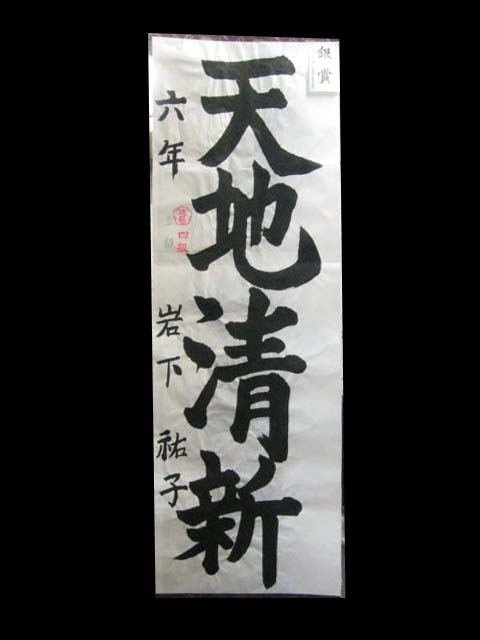 銀賞
天地清新
六年 岩下 祐子
四級